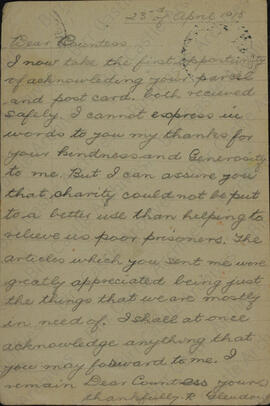 23rd of April 1915
Dear Countess
I now take the first opportunity
of acknowleding your parcel
and post card. both recieved
safely. I cannot express in
words to you my thanks for
your kindness and Generosity
to me. But I can assure you
that charity could not be put
to a better use than helping to
relieve us poor prisoners. The
articles which you sent me were
greatly appreciated being just
the things that we are mostly
in need of. I shall at once
acknowledge anything that
you may forward to me. I
remain Dear Countess yours
thankfully R